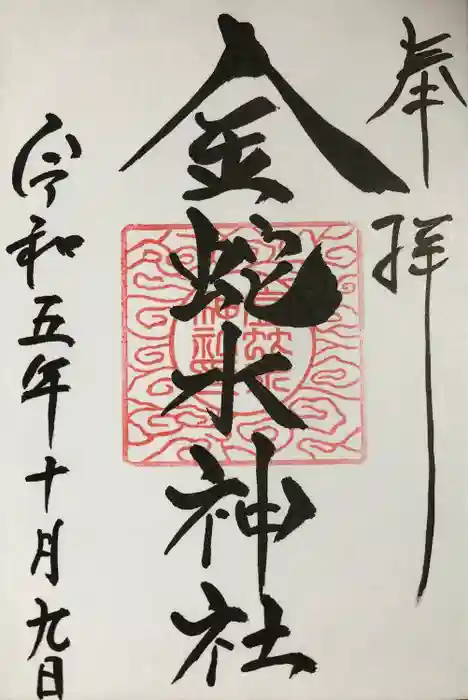 奉拝
金蛇水神社
令和五年十月九日